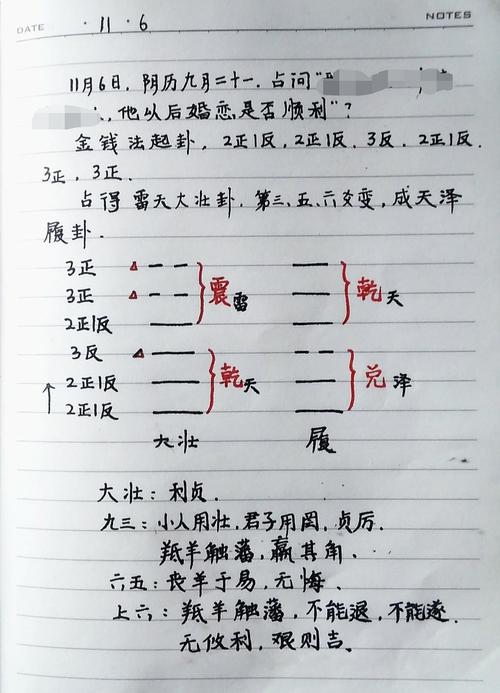 DATE 11 · 6 NOTES
11月6日，阴历九月二十一，占问"
，他以后婚恋是否顺利"？
金钱法起卦，2正1反，2正1反，3反，2正1反，
3正，3正．
占得 雷天大壮卦，第三、五、六爻变，成天泽
履卦．
3正 震雷 乾天
3正
2正1反
3反 乾天 兑泽
2正1反
2正1反
大壮 履
大壮：利贞．
九三：小人用壮，君子用罔，贞厉．
羝羊触藩，羸其角．
六五：丧羊于易，无悔．
上六：羝羊触藩，不能退，不能遂．
无攸利，艰则吉。